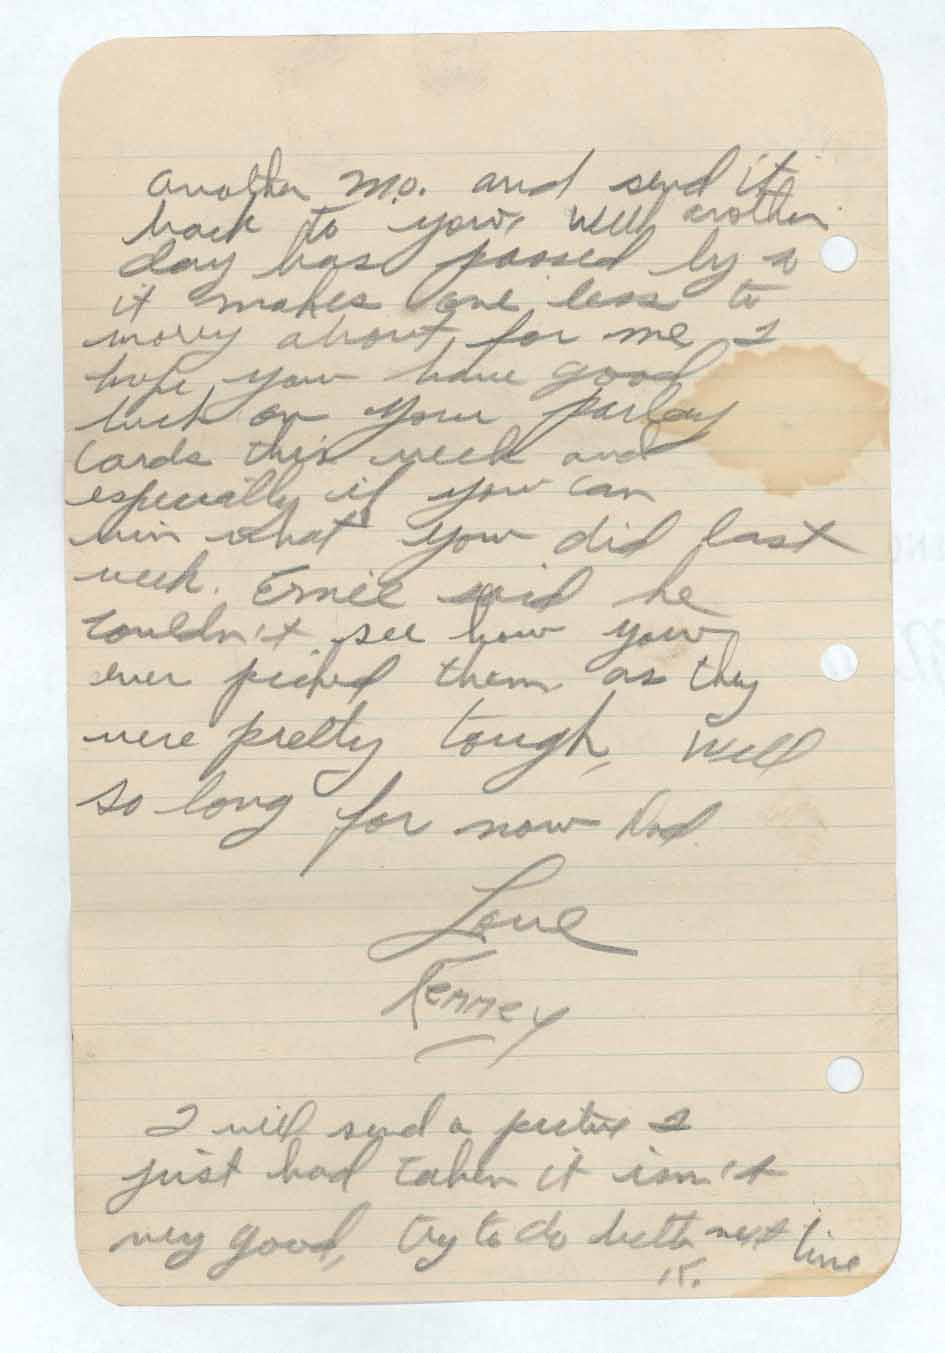 another M.O. and send it
back to you. Well another
day has passed by &
it makes one less to
worry about for me, I
hope you have good
luck on your parlay
cards this week and
especially if you can
win what you did last
week. Ernie said he
couldn't see how you
ever picked them as they
were pretty tough, Well
so long for now Dad.
Love
Kenney
I will send a picture I
just had taken it isn't
very good, try to do better next time
K.